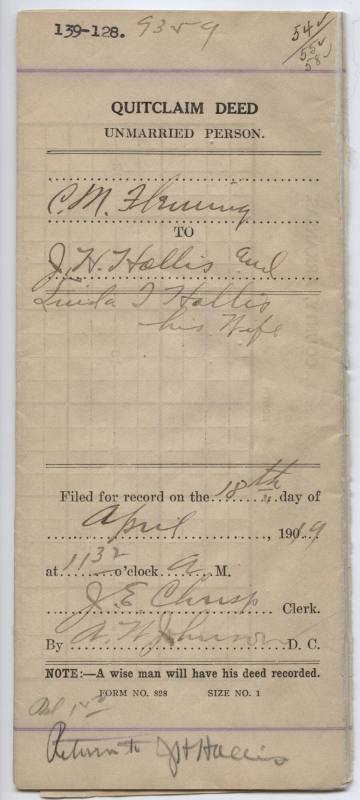 139-128. 9359
54
55
58
QUITCLAIM DEED
UNMARRIED PERSON.
C. M. Fleming
TO
J. H. Hollis and
Linda T Hollis
his Wife
Filed for record on the 18th day of
April, 1919
at 11 32 o'clock A. M.
J. E. Chrisp Clerk.
By A. W Johnson D. C.
NOTE:—A wise man will have his deed recorded.
FORM NO. 828 SIZE NO. 1
Pd
Return to J H Hollis